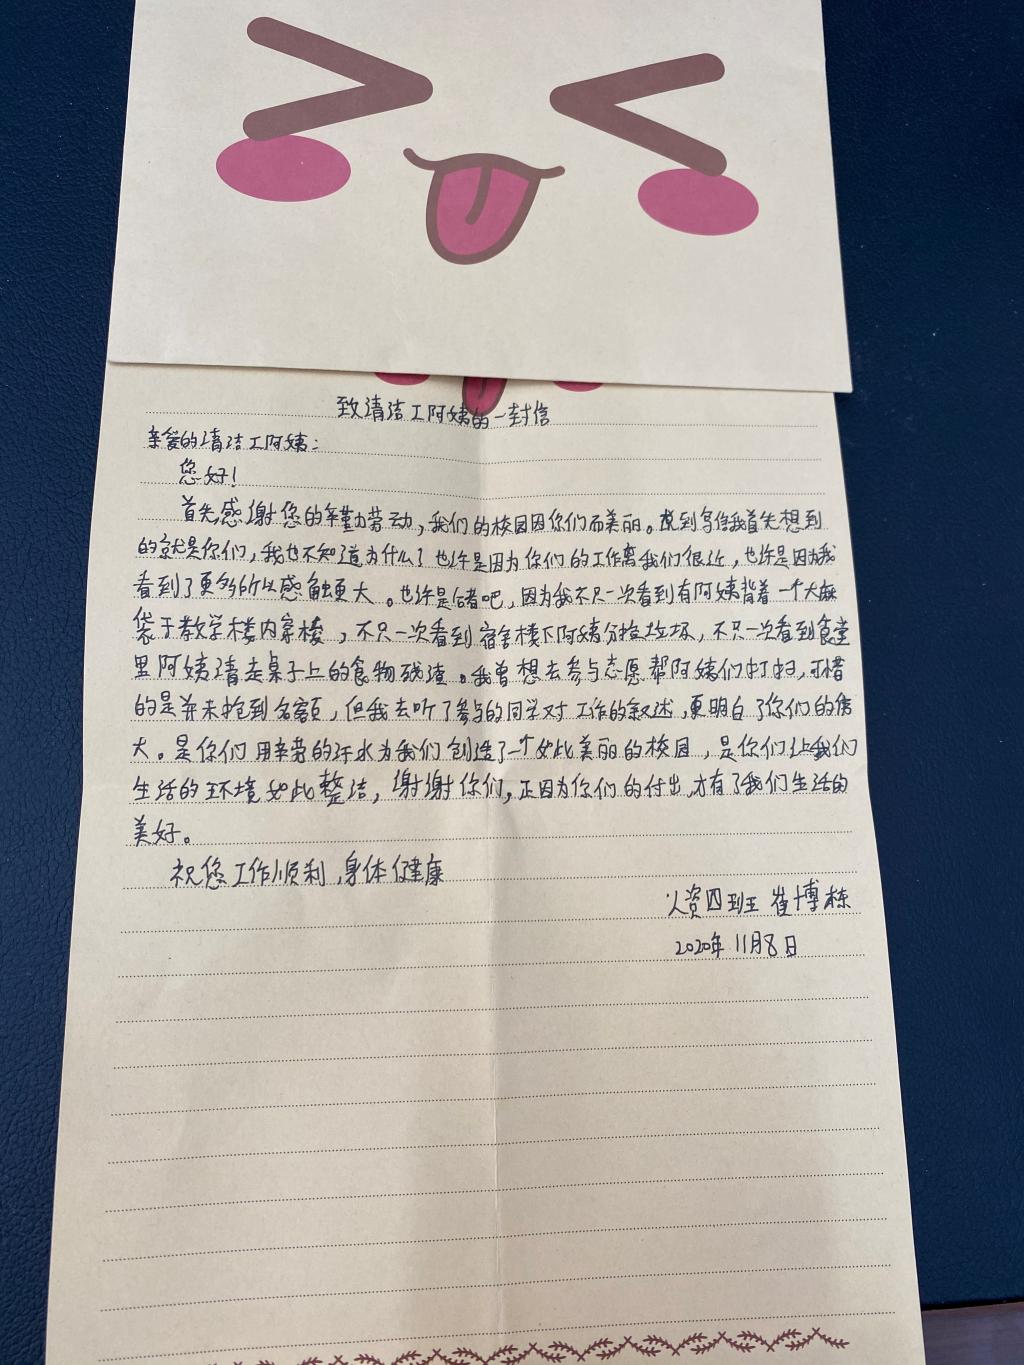 致清洁工阿姨的一封信
亲爱的清洁工阿姨：
您好！
首先感谢您的辛勤劳动，我们的校园因你们而美丽。说到写信我首先想到
的就是你们，我也不知道为什么了也许是因为你们的工作离我们很近，也许是因为我
看到了更多所以感触更大。也许是后者吧，因为我不只一次看到有阿姨背着一个大麻
袋于教学楼内穿梭，不只一次看到宿舍楼下阿姨分捡垃圾，不只一次看到食堂
里阿姨清走桌子上的食物残渣。我曾想去参与志愿帮阿姨们打扫，可惜
的是并未抢到名额，但我去听了参与的同学对工作的叙述，更明白了你们的伟
大。是你们用辛劳的汗水为我们创造了一个如此美丽的校园，是你们让我们
生活的环境如此整洁，谢谢你们，正因为你们的付出，才有了我们生活的
美好。
祝您工作顺利，身体健康
人资四班 崔博栋
2020年11月8日